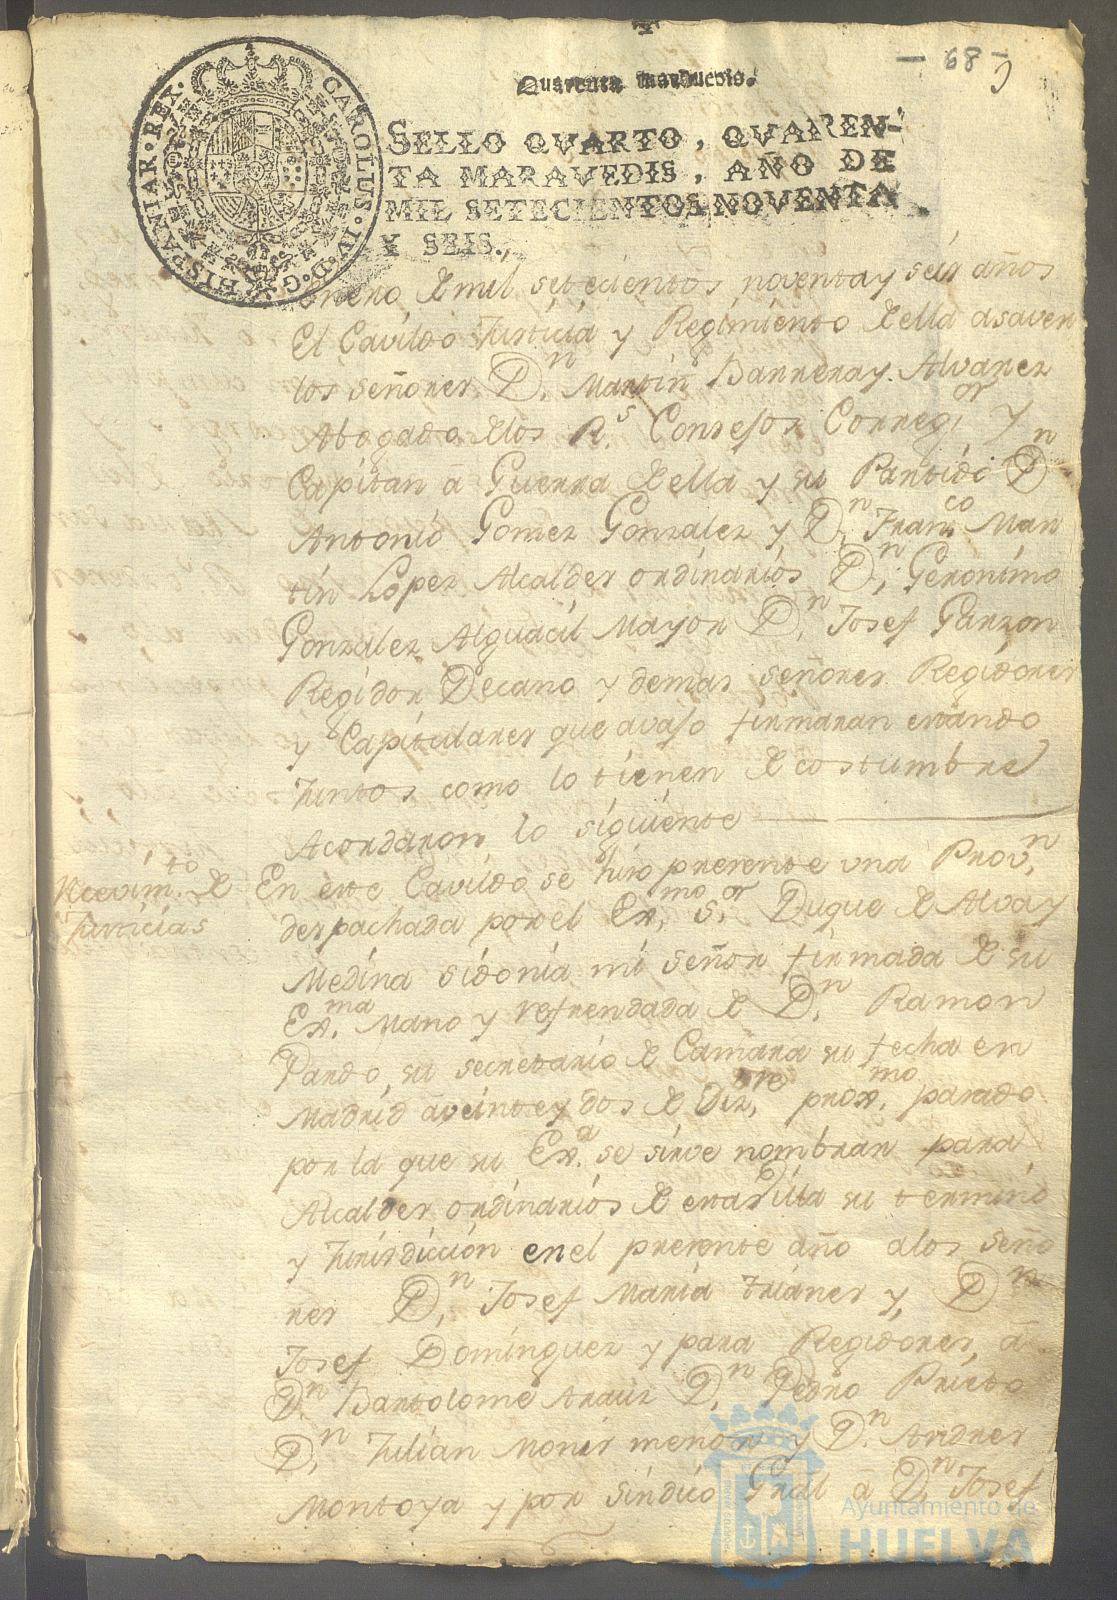 - 68 -
Quarenta maravedis.
CAROLUS·IV·D·G·HISPANIAR·REX·
SELLO QVARTO, QVAREN-
TA MARAVEDIS, AÑO DE
MIL SETECIENTOS NOVENTA
Y SEIS.
enero de mil setecientos noventa y seis años
El Cavildo Justicia y Regimiento de ella asaver
los señores Dn. Martin Barrera y Alvarez
Abogado de los Rs. Consejos Corregior y
Capitan á Guerra de ella y su Partido Dn
Antonio Gomez Gonzalez y Dn. Franco Mar
tin Lopez Alcaldes ordinarios Dn. Geronimo
Gonzalez Alguacil Mayor Dn. Josef Garzon
Regidor Decano y demas señores Regidores
y Capitulares que avajo firmaran estando
Juntos como lo tienen de costumbre
Acordaron lo siguiente
Rcevimto de
Justicias
En este Cavildo se hizo presente una Provn
despachada por el Exmo. Sor. Duque de Alva y
Medina sidonia mi señor firmada de su
Exma. Mano y refrendada de Dn. Ramon
Pardo, su secretario de Camara su fecha en
Madrid a veinte y dos de Dizre. proxmo. pasado
por la que su Exa. se sirve nombrar para
Alcaldes ordinarios de esta Villa su termino
y Jurisdiccion en el presente año a los seño
res Dn. Josef Maria Trianes y Dn
Josef Dominguez y para Regidores, á
Dn. Bartolome Arauz Dn. Pedro Prieto
Dn. Julian Monis menor y Dn. Andres
Montoya y por sindico Gral a Dn Josef
Ayuntamiento de
HUELVA